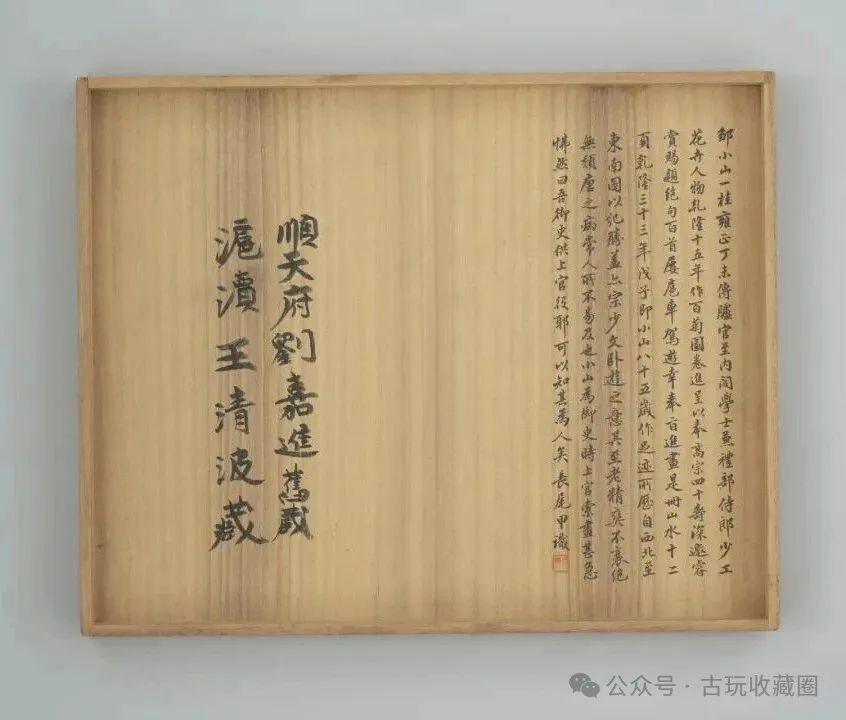 鄒小山一桂雍正丁未傳臚官至内閣學士兼禮部侍郎少工
花卉人物乾隆十五年作百菊圖卷進呈以奉高宗四十壽深邀睿
賞賜題絶句百首屢扈車駕遊幸奉旨進畫是冊山水十二
頁乾隆三十三年戊子即小山八十五歳作足迹所歴自西北至
東南図以紀勝蓋亦宗少文卧遊之意其至老精爽不衰絶
無頽唐之病常人所不易及也小山為御史時上官索畫甚急
怫然曰吾御史供上官役耶可以知其為人矣長尾甲識
順天府劉嘉進舊蔵
滬瀆王清波蔵
公众号·古玩收藏圈